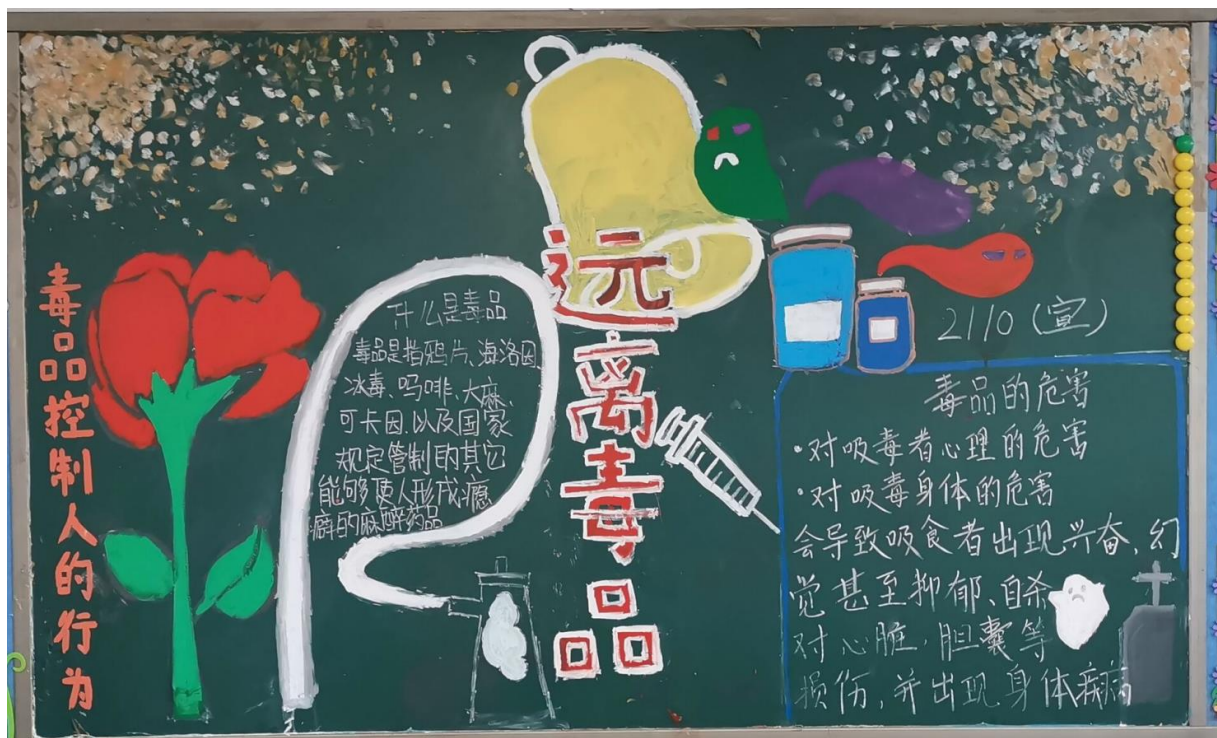 毒品控制人的行为
什么是毒品
毒品是指鸦片、海洛因
冰毒、吗啡、大麻、
可卡因以及国家
规定管制的其它
能够使人形成瘾
癖的麻醉药品
远离毒品
2110(宣)
毒品的危害
·对吸毒者心理的危害
·对吸毒身体的危害
会导致吸食者出现兴奋、幻
觉甚至抑郁、自杀
对心脏,胆囊等
损伤,并出现身体痴病